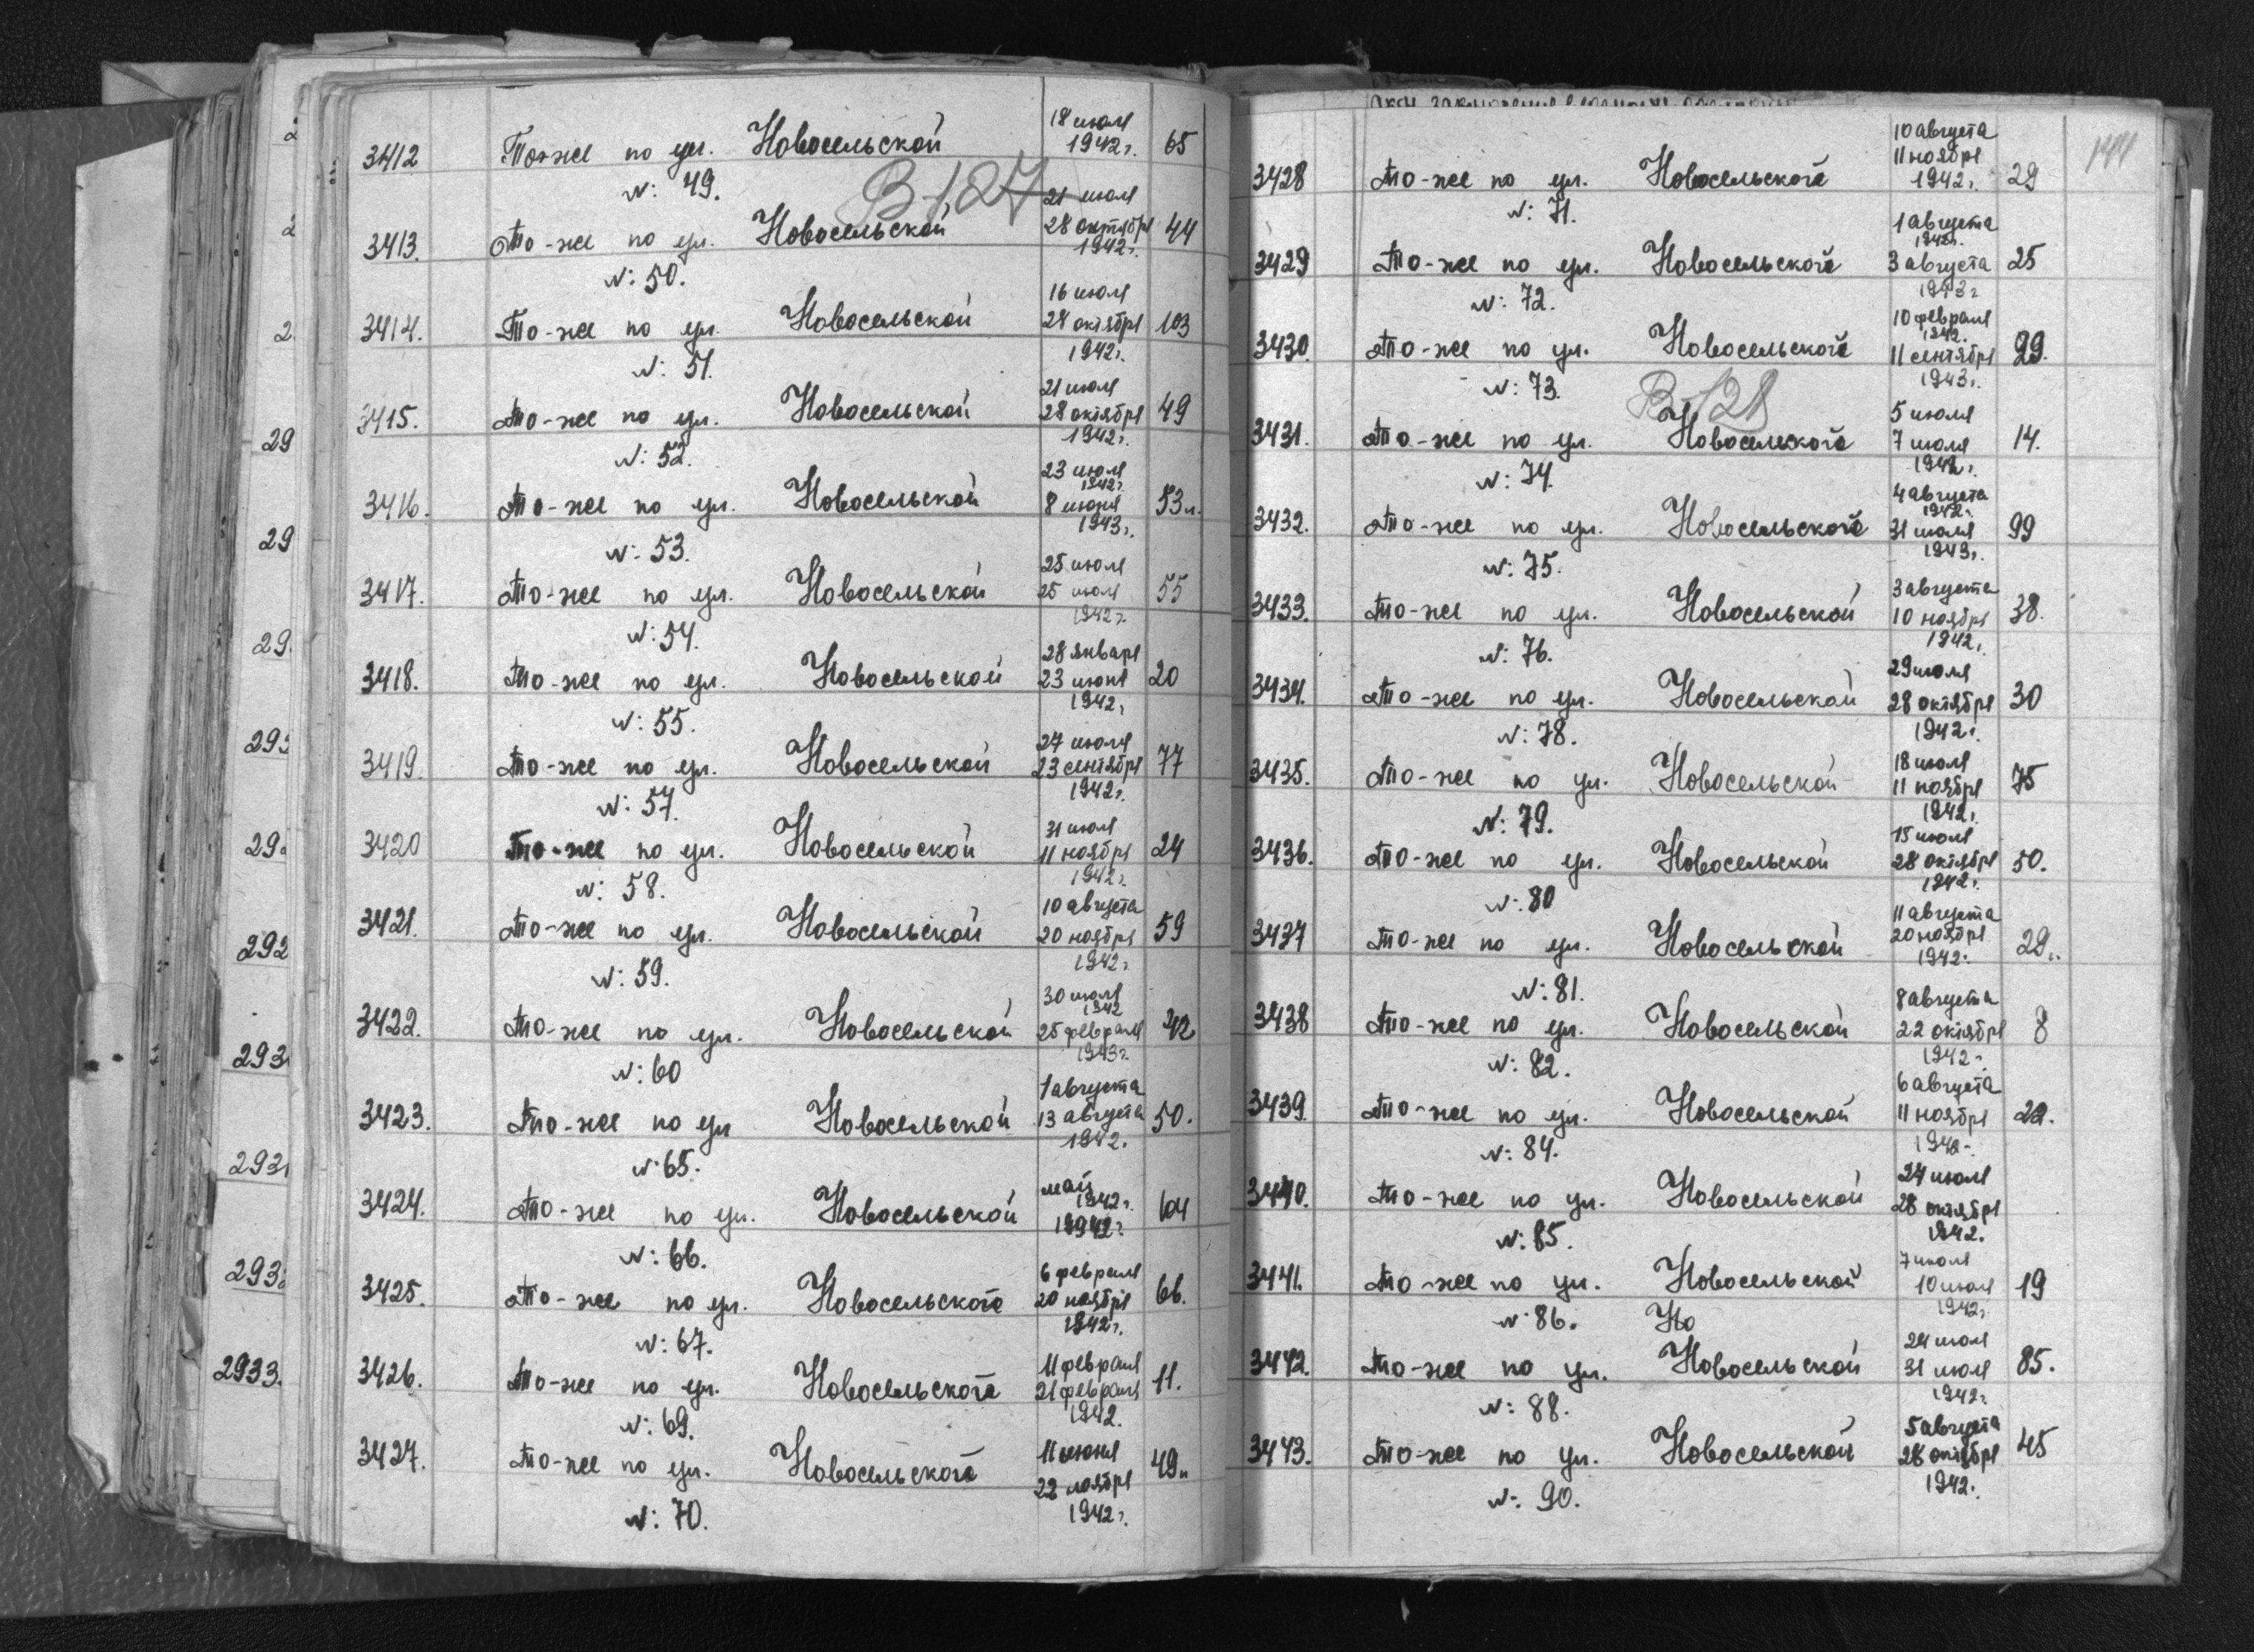 18 июля
3412 То-же по ул. Новосельской 1942г. 65
N: 49.
В-127
21 июля
3413. То-же по ул. Новосельской 28 октября 44
1942г.
N: 50.
16 июля
3414. То-же по ул. Новосельской 28 октября 103
1942г.
N: 51.
21 июля
3415. То-же по ул. Новосельской 28 октября 49
1942г.
N: 52.
23 июля
1942г.
3416. То-же по ул. Новосельской 8 июня 53л.
1943г.
N: 53.
25 июля
3417. То-же по ул. Новосельской 25 июля 55
1942г.
N: 54.
28 января
3418. То-же по ул. Новосельской 23 июня 20
1942г
N: 55.
27 июля
3419. То-же по ул. Новосельской 23 сентября 77
1942г.
N: 57.
31 июля
3420 То-же по ул. Новосельской 11 ноября 24
1942г.
N: 58.
10 августа
3421. То-же по ул. Новосельской 20 ноября 59
1942г.
N: 59.
30 июля
1942
3422. То-же по ул. Новосельской 25 февраля 42
1943г.
N: 60
1 августа
3423. То-же по ул Новосельской 13 августа 50.
1942.
N: 65.
май
1942г.
3424. То-же по ул. Новосельской 1942г. 64
N: 66.
6 февраля
3425. То-же по ул. Новосельского 20 ноября 66.
1942г.
N: 67.
11 февраля
3426. То-же по ул. Новосельского 21 февраля 11.
1942.
N: 69.
11 июня
3427. То-же по ул. Новосельского 22 ноября 49л
1942г.
N: 70.
144
10 августа
11 ноября
3428 То-же по ул. Новосельского 1942г. 29
N: 71.
1 августа
1942г.
3429 То-же по ул. Новосельского 3 августа 25
1943г
N: 72.
10 февраля
1942.
3430. То-же по ул. Новосельского 11 сентября 29.
1943г.
N: 73.
В-128
5 июля
3431. То-же по ул. Новосельского 7 июля 14.
1942г.
N: 74.
4 августа
1942г.
3432. То-же по ул. Новосельского 31 июля 99
1943г.
N: 75.
3 августа
3433. То-же по ул. Новосельской 10 ноября 38.
1942г.
N: 76.
29 июля
3434. То-же по ул. Новосельской 28 октября 30
1942г.
N: 78.
18 июля
3435. То-же по ул. Новосельской 11 ноября 75
1942г.
N: 79.
15 июля
3436. То-же по ул. Новосельской 28 октября 50.
1942г.
N: 80
11 августа
3437 То-же по ул. Новосельской 20 ноября 29л.
1942.
N: 81.
8 августа
3438 То-же по ул. Новосельской 22 октября 8
1942г.
N: 82.
6 августа
3439. То-же по ул. Новосельской 11 ноября 22.
1942г.
N: 84.
24 июля
3440. То-же по ул. Новосельской 28 октября
1942.
N: 85.
7 июля
3441. То-же по ул. Новосельской 10 июля 19
1942г.
N: 86. Но
24 июля
3442. То-же по ул. Новосельской 31 июля 85.
1942г.
N: 88.
5 августа
3443. То-же по ул. Новосельской 28 октября 45
1942.
N: 90.
29
29
29.
292
293
2933.